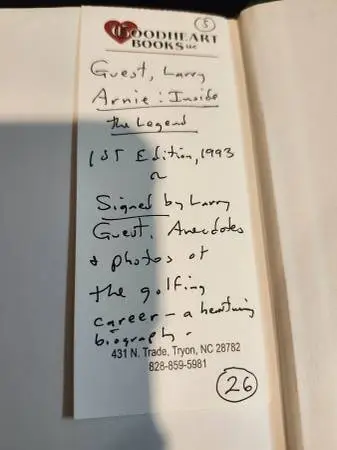 5
GOODHEART
BOOKS LLC
Guest, Larry
Arnie: Inside
the Legend
1ST Edition, 1993
~
Signed by Larry
Guest. Anecdotes
+ photos of
the golfing
career - a
biography.
431 N. Trade, Tryon, NC 28782
828-859-5981
26